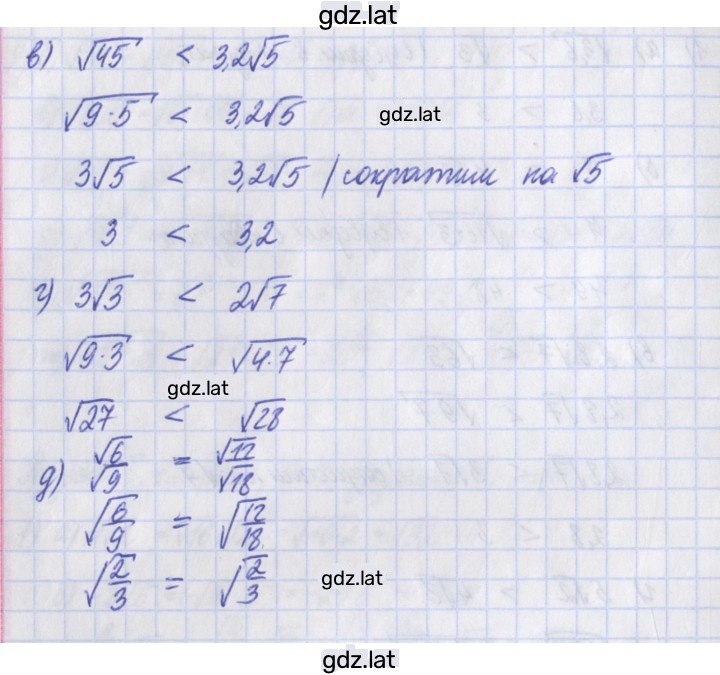 gdz.lat
в) √45 < 3,2√5
√9·5 < 3,2√5
gdz.lat
3√5 < 3,2√5 / сократим на √5
3 < 3,2
г) 3√3 < 2√7
√9·3 < √4·7
gdz.lat
√27 < √28
д) √6/√9 = √12/√18
√6/9 = √12/18
√2/3 = √2/3
gdz.lat
gdz.lat